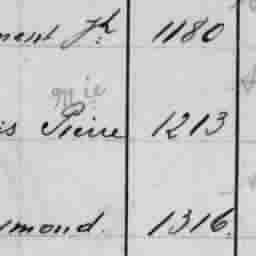 ment Jh 1180
is Pierre 1213
ymond. 1316.